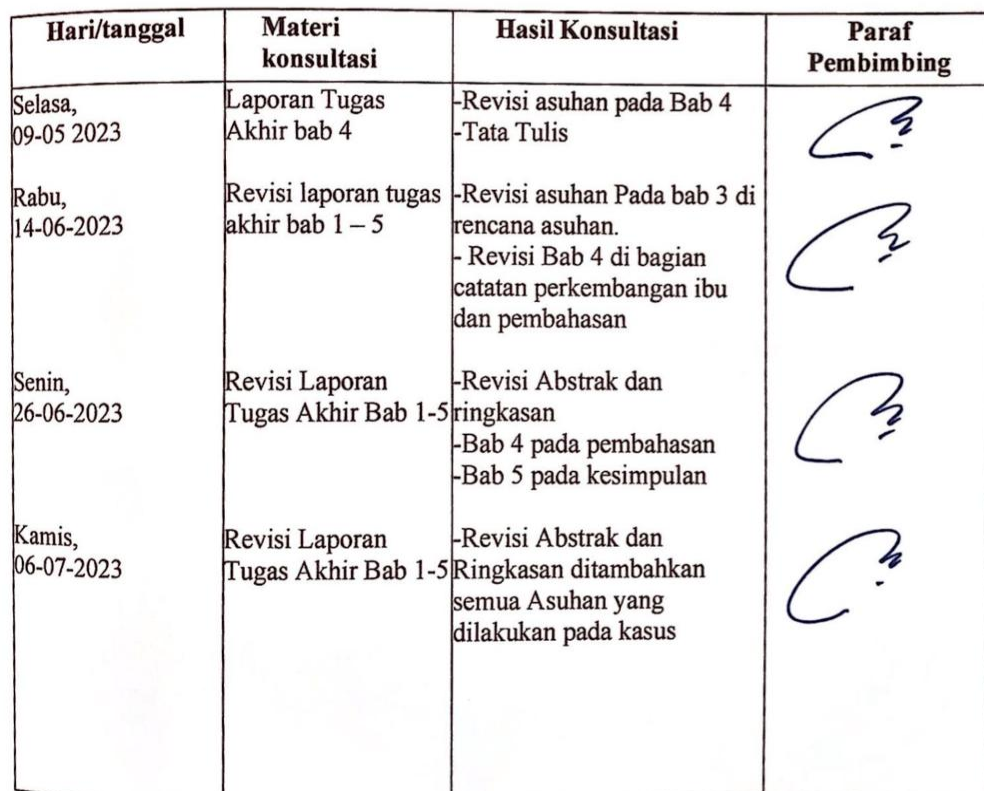 Hari/tanggal
Materi
konsultasi
Hasil Konsultasi
Paraf
Pembimbing
Selasa,
09-05 2023
Laporan Tugas
Akhir bab 4
-Revisi asuhan pada Bab 4
-Tata Tulis
Rabu,
14-06-2023
Revisi laporan tugas
akhir bab 1 – 5
-Revisi asuhan Pada bab 3 di
rencana asuhan.
- Revisi Bab 4 di bagian
catatan perkembangan ibu
dan pembahasan
Senin,
26-06-2023
Revisi Laporan
Tugas Akhir Bab 1-5
-Revisi Abstrak dan
ringkasan
-Bab 4 pada pembahasan
-Bab 5 pada kesimpulan
Kamis,
06-07-2023
Revisi Laporan
Tugas Akhir Bab 1-5
-Revisi Abstrak dan
Ringkasan ditambahkan
semua Asuhan yang
dilakukan pada kasus